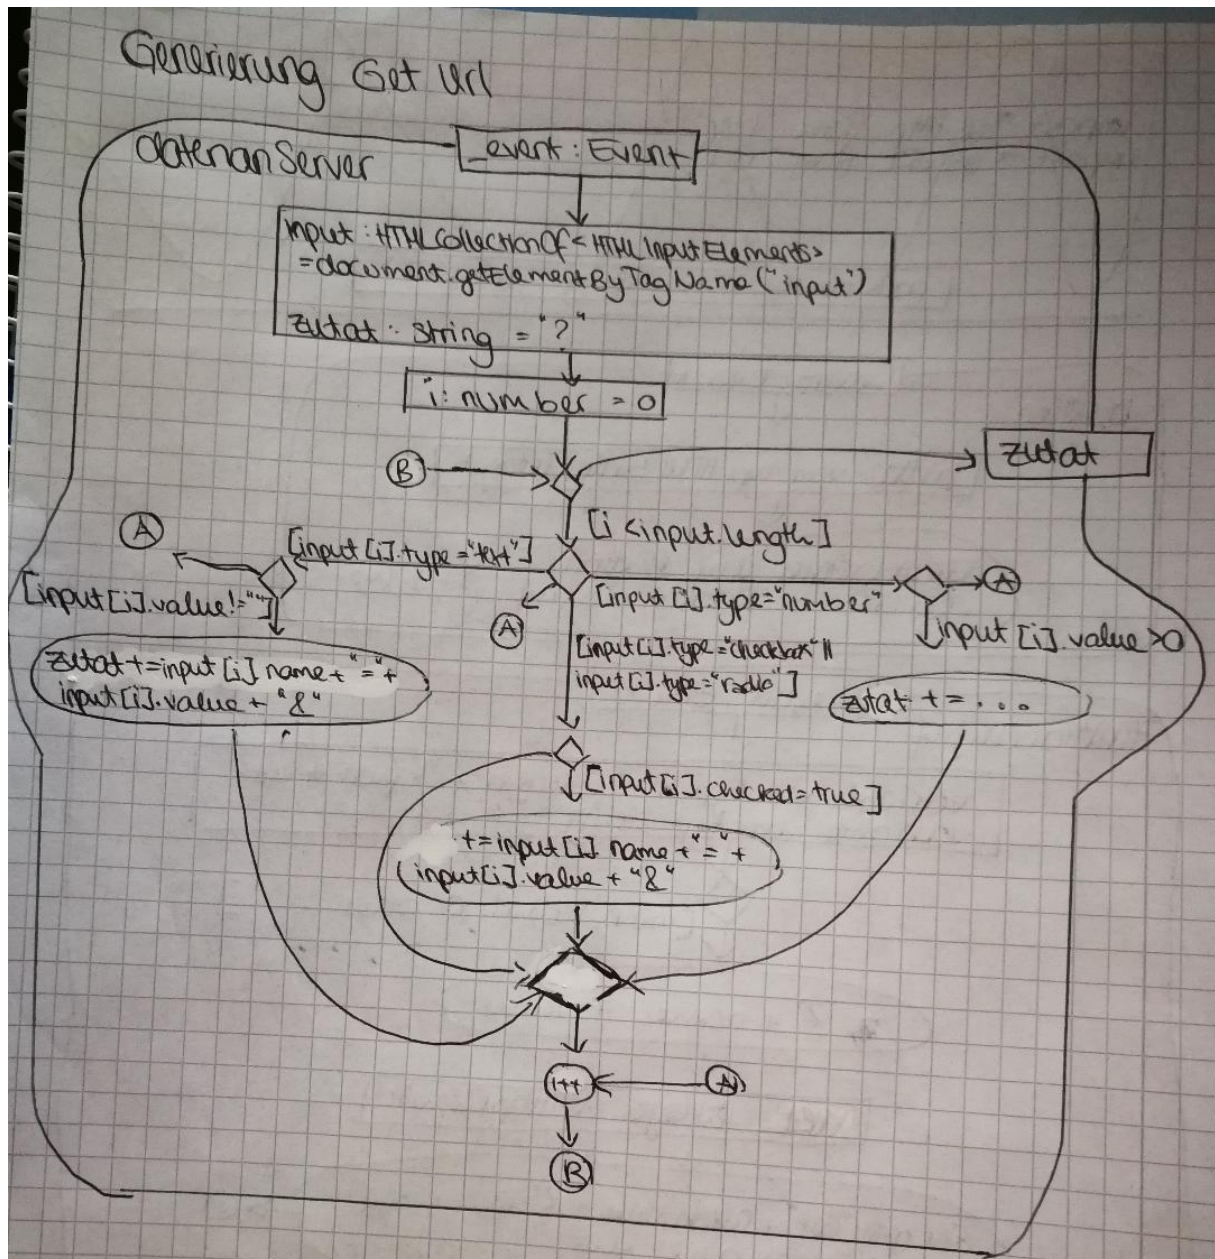 Generierung Get Url
datenanServer
_event : Event
input : HTMLCollectionOf<HTMLInputElements>
=document.getElementByTagName("input")
zutat : string = "?"
i: number = 0
B
zutat
[i <input.length]
A
[input [i].type="text"]
[input[i].value!=""]
A
[input [i].type="number"
A
input [i]. value >0
[input[i].type="checkbox" ||
input[i].type="radio"]
zutat +=input [i]. name + "=" +
input[i].value + "&"
zutat += ...
[input[i].checked=true]
+=input [i]. name + "=" +
input[i].value + "&"
i++
A
B